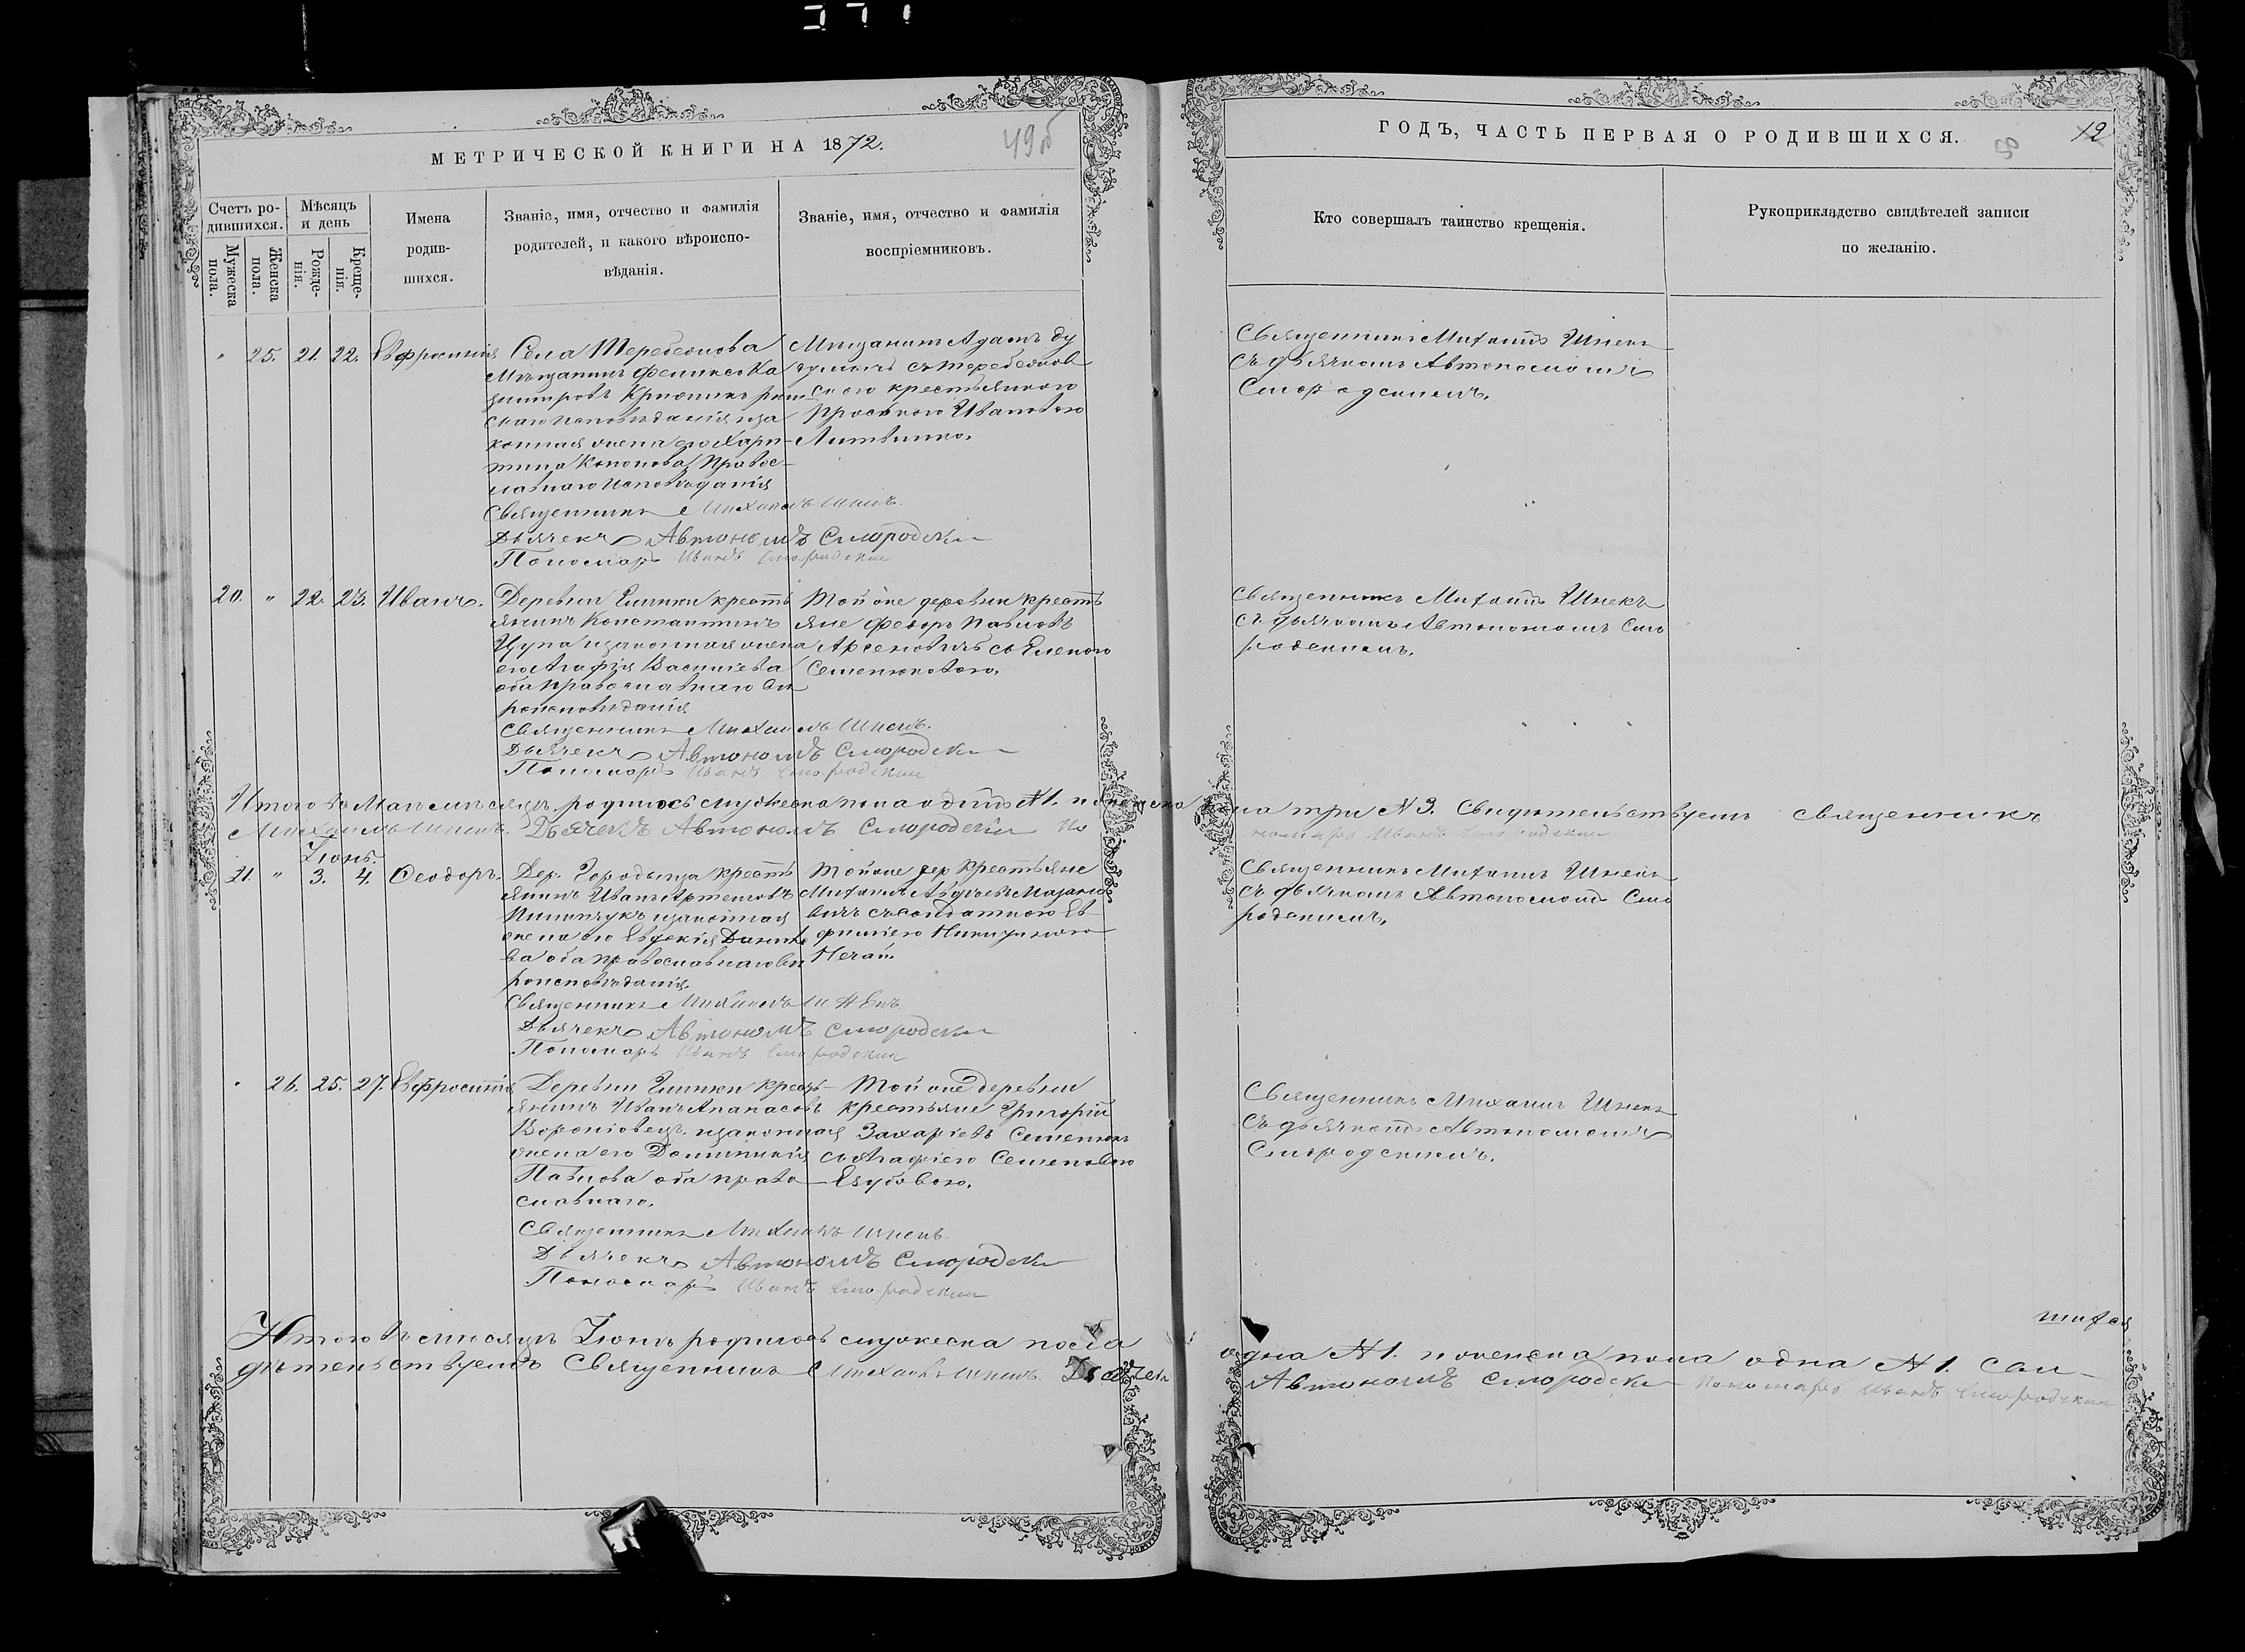 МЕТРИЧЕСКОЙ КНИГИ НА 1872.
49об
Счетъ родившихся.
Мужеска пола.
Женска пола.
Мѣсяцъ и день
Рожденія.
Крещенія.
Имена родившихся.
Званіе, имя, отчество и фамилія родителей, и какого вѣроисповѣданія.
Званіе, имя, отчество и фамилія воспріемниковъ.
ГОДЪ, ЧАСТЬ ПЕРВАЯ О РОДИВШИХСЯ.
12
Кто совершалъ таинство крещенія.
Рукоприкладство свидѣтелей записи по желанію.
" 25. 21. 22. Евфросинія
Села Теребежова
Мѣщанинъ Феликсъ Ка
скаго исповѣданія и за
конная жена его Хари
тина Кононова Правос
лавнаго исповѣданія
Священникъ Михаилъ Шнекъ.
Дьячекъ Автономъ Смородскій
Пономаръ Иванъ Смородскій
Мѣщанинъ Адамъ
съ теребежов
скою крестьянкою
Ивановою
Литвинко.
Священникъ Михаилъ Шнекъ
съ дьячкомъ Автономомъ
Смородскимъ.
20. " 22. 23. Иванъ.
Деревни Глинки кресть
янинъ Константинъ
Цупа и законная жена
его Агафія Васильева
оба православнаго вѣ
роисповѣданія
Священникъ Михаилъ Шнекъ.
Дьячекъ Автономъ Смородскій
Пономаръ Иванъ Смородскій
Той же деревни кресть
яне Федоръ Павловъ
Арсеновичъ съ Еленою
Семенюковою.
Священникъ Михаилъ Шнекъ
съ дьячкомъ Автономомъ Смо
родскимъ.
Итого въ Маѣ мѣсяцѣ родилось мужеска пола одинъ №1. и женска пола три №3. Свидѣтельствуемъ священникъ
Михаилъ Шнекъ. Дьячекъ Автономъ Смородскій По
номаръ Иванъ Смородскій
Іюнь.
21. " 3. 4. Ѳеодоръ.
Дер. Городища кресть
янинъ Иванъ Артемовъ
и законная
жена его Евдокія Данило
ва оба православнаго вѣ
роисповѣданія
Священникъ Михаилъ Шнекъ.
Дьячекъ Автономъ Смородскій
Пономаръ Иванъ Смородскій
Той же дер. Крестьяне
Михаилъ
вичъ съ солдаткою Ев
фиміею
Нечай.
Священникъ Михаилъ Шнекъ
съ дьячкомъ Автономомъ Смо
родскимъ.
" 26. 25. 27. Евфросинія
Деревни Глинки кресть
янинъ Иванъ Апанасовъ
и законная
жена его Доминикія
Павлова оба право
славнаго.
Священникъ Михаилъ Шнекъ.
Дьячекъ Автономъ Смородскій
Пономаръ Иванъ Смородскій
Той же деревни
крестьяне Григорій
Захаріевъ Семенюкъ
съ Агафіею Семеновою
Священникъ Михаилъ Шнекъ
съ дьячкомъ Автономомъ
Смородскимъ.
Итого въ мѣсяцѣ Іюнѣ родилось мужеска пола одна №1. и женска пола одна №1. Сви
дѣтельствуемъ Священникъ Михаилъ Шнекъ. Дьячекъ Автономъ Смородскій Пономаръ Иванъ Смородскій